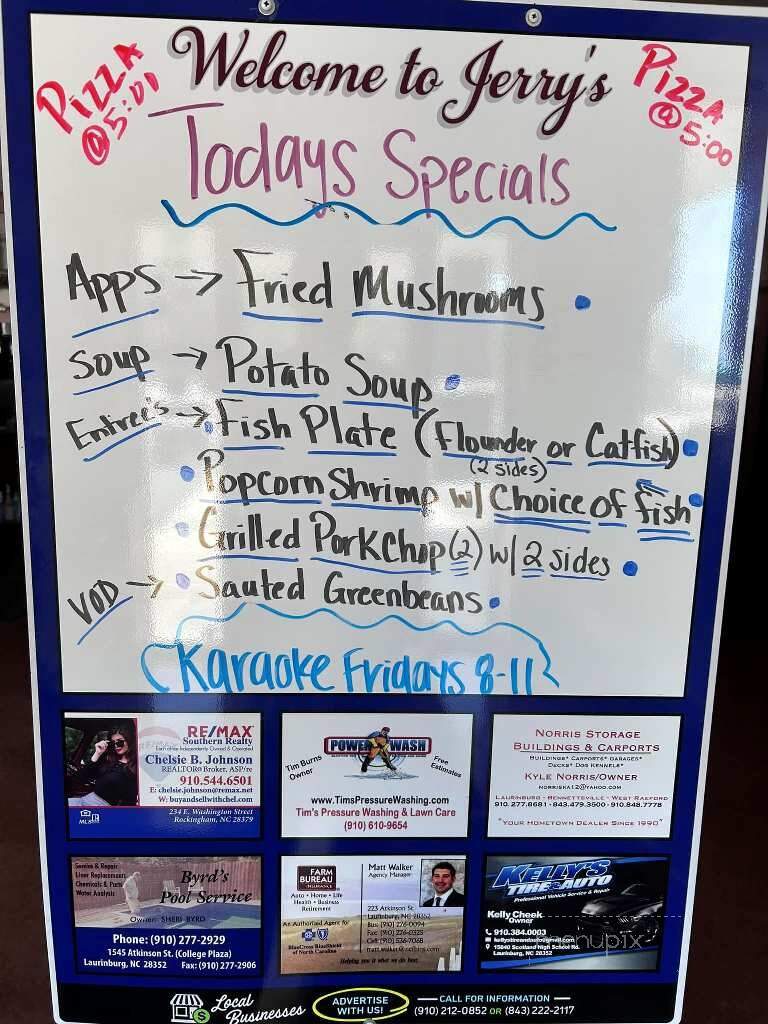 Welcome to Jerry's
PIZZA @ 5:00
PIZZA @ 5:00
Todays Specials
Apps → Fried Mushrooms
Soup → Potato Soup
Entree's → Fish Plate (Flounder or Catfish)
(2 sides)
Popcorn Shrimp w/ Choice of fish
Grilled Pork Chop (2) w/ 2 sides
VOD → Sauted Greenbeans
Karaoke Fridays 8-11
RE/MAX
Southern Realty
Each office Independently Owned & Operated
Chelsie B. Johnson
REALTOR® Broker, ASP/re
910.544.6501
E: chelsie.johnson@remax.net
W: buyandsellwithchel.com
234 E. Washington Street
Rockingham, NC 28379
MLS
POWER WASH
Tim Burns
Owner
Free
Estimates
www.TimsPressureWashing.com
Tim's Pressure Washing & Lawn Care
(910) 610-9654
NORRIS STORAGE
BUILDINGS & CARPORTS
BUILDINGS* CARPORTS* GARAGES*
DECKS* DOG KENNELS*
KYLE NORRIS/OWNER
NORRISKA12@YAHOO.COM
LAURINBURG - BENNETTSVILLE - WEST RAEFORD
910.277.8681 - 843.479.3500 - 910.848.7778
"YOUR HOMETOWN DEALER SINCE 1990"
Service & Repair
Liner Replacement
Chemicals & Parts
Water Analysis
Byrd's
Pool Service
Owner: SHERI BYRD
Phone: (910) 277-2929
1545 Atkinson St. (College Plaza)
Laurinburg, NC 28352 Fax: (910) 277-2906
FARM
BUREAU
INSURANCE
Auto • Home • Life
Health • Business
Retirement
An Authorized Agent for
BlueCross BlueShield
of North Carolina
Matt Walker
Agency Manager
223 Atkinson St.
Laurinburg, NC 28352
Bus: (910) 276-0094
Fax: (910) 276-0325
Helping you is what we do best.
KELLY'S
TIRE & AUTO
Professional Vehicle Service & Repair
Kelly Cheek
Owner
910.384.0003
kellystireandauto@gmail.com
15040 Scotland High School Rd.
Laurinburg, NC 28352
menupix
Local
Businesses
ADVERTISE
WITH US!
CALL FOR INFORMATION
(910) 212-0852 OR (843) 222-2117